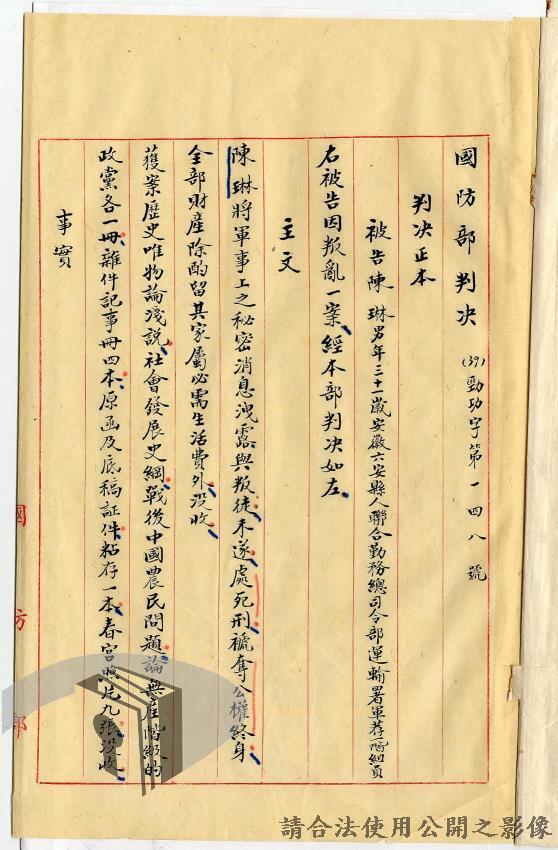 國防部判決 (39)勁功字第一四八號
判決正本
被告陳 琳男年三十一歲安徽六安縣人聯合勤務總司令部運輸署軍荐一階組員
右被告因叛亂一案經本部判決如左
主文
陳琳將軍事上之秘密消息洩露與叛徒未遂處死刑褫奪公權終身
全部財產除酌留其家屬必需生活費外沒收
獲案歷史唯物論淺說社會發展史綱戰後中國農民問題論無產階級的
政黨各一冊雜件記事冊四本原函及底稿証件粘存一本春宮照片九張沒收
事實
國防部
請合法使用公開之影像